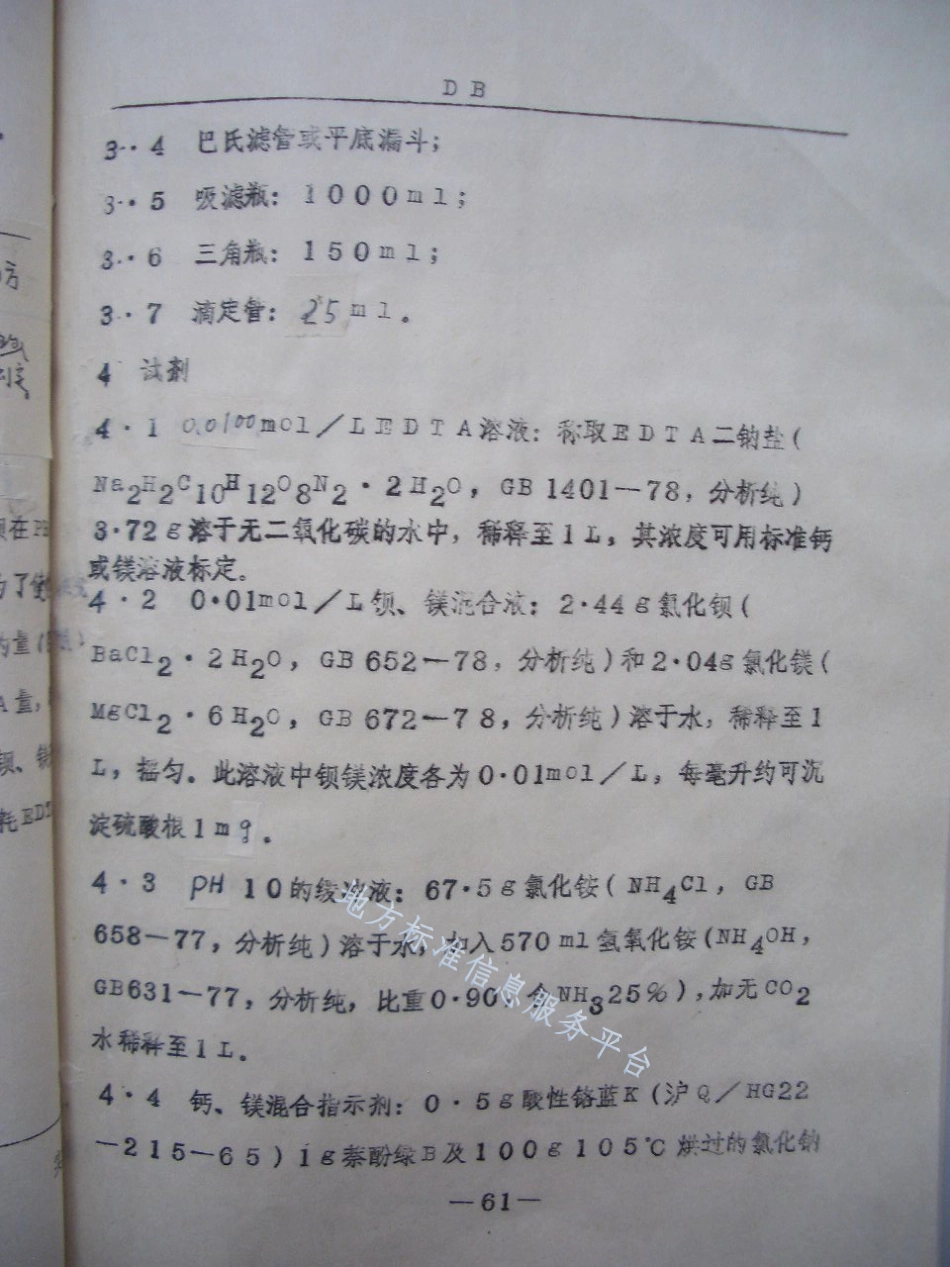 DB
3·4 巴氏滤管或平底漏斗；
3·5 吸滤瓶：1000ml；
3·6 三角瓶：150ml；
3·7 滴定管：25ml。
4 试剂
4·1 0.0100mol／LEDTA溶液：称取EDTA二钠盐（
Na₂H₂C₁₀H₁₂O₈N₂·2H₂O，GB 1401—78，分析纯）
3·72g溶于无二氧化碳的水中，稀释至1L，其浓度可用标准钙
或镁溶液标定。
4·2 0·01mol／L钡、镁混合液：2·44g氯化钡（
BaCl₂·2H₂O，GB 652—78，分析纯）和2·04g氯化镁（
MgCl₂·6H₂O，GB 672—78，分析纯）溶于水，稀释至1
L，摇匀。此溶液中钡镁浓度各为0·01mol／L，每毫升约可沉
淀硫酸根1mg。
4·3 PH 10的缓冲液：67·5g氯化铵（NH₄Cl，GB
658—77，分析纯）溶于水，加入570ml氢氧化铵（NH₄OH，
GB631—77，分析纯，比重0·90，含NH₃25%），加无CO₂
水稀释至1L。
4·4 钙、镁混合指示剂：0·5g酸性铬蓝K（沪Q／HG22
—215—65）1g萘酚绿B及100g105℃烘过的氯化钠
—61—
地方标准信息服务平台